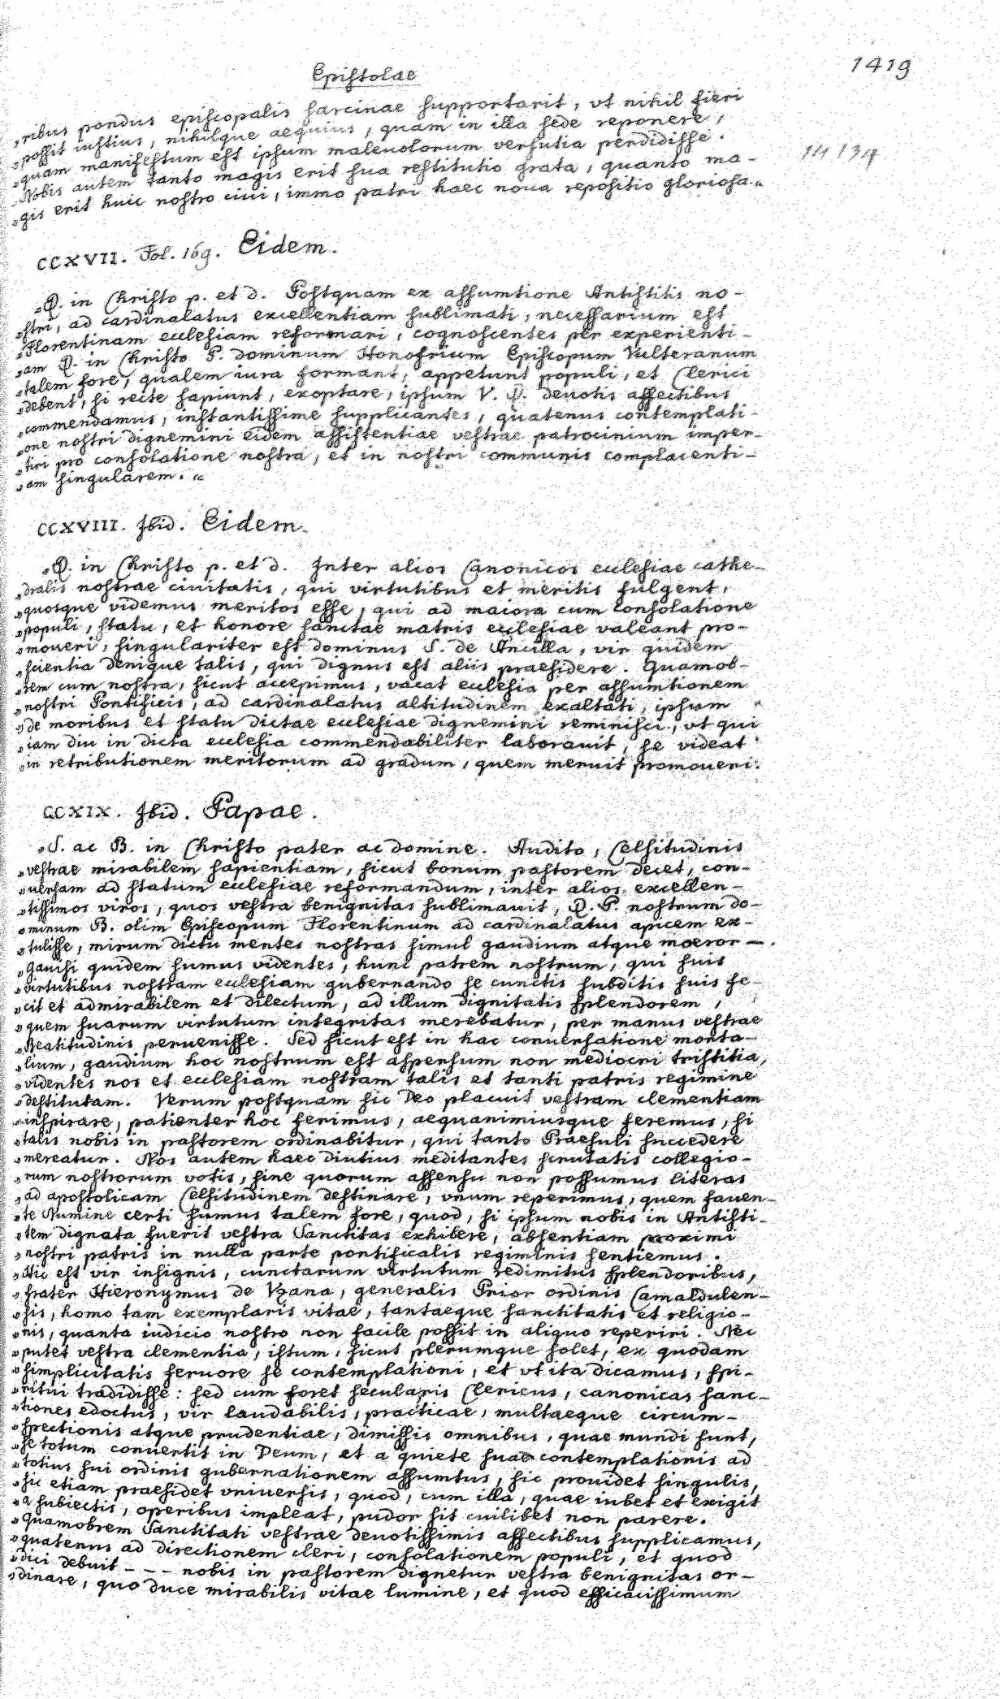 Epistolae
1419
„ribus pondus episcopalis sarcinae supportarit, ut nihil fieri
„possit iustius, nihilque aequius, quam in illa sede reponere,
„quam manifestum est ipsum malevolorum versutia perdidisse.
14134
„Nobis autem tanto magis erit sua restitutio grata, quanto ma-
„gis erit huic nostro civi, immo patri haec nova repositio gloriosa.„
CCXVII. Fol. 169. Eidem.
„D. in Christo p. et d. Postquam ex assumtione Antistitis no-
„stri, ad cardinalatus excellentiam sublimati, necessarium est
„Florentinam ecclesiam reformari, cognoscentes per experienti-
„am D. in Christo P. dominum Honofrium Episcopum Vulteranum
„talem fore, qualem iura formant, appetunt populi, et Clerici
„debent, si recte sapiunt, exoptare, ipsum V. D. devotis affectibus
„commendamus, instantissime supplicantes, quatenus contemplati-
„one nostri dignemini eidem assistentiae vestrae patrocinium imper-
„tiri pro consolatione nostra, et in nostri communis complacenti-
„am singularem. „
CCXVIII. Ibid. Eidem.
„D. in Christo p. et d. Inter alios Canonicos ecclesiae cathe-
„dralis nostrae civitatis, qui virtutibus et meritis fulgent,
„quosque videmus meritos esse, qui ad maiora cum consolatione
„populi, statu, et honore sanctae matris ecclesiae valeant pro-
„moveri, singulariter est dominus S. de Ancilla, vir quidem
„scientia denique talis, qui dignus est aliis praesidere. Quamob-
„rem cum nostra, sicut accepimus, vacat ecclesia per assumtionem
„nostri Pontificis, ad cardinalatus altitudinem exaltati, ipsum
„de moribus et statu dictae ecclesiae dignemini reminisci, ut qui
„iam diu in dicta ecclesia commendabiliter laboravit, se videat
„in retributionem meritorum ad gradum, quem meruit promoveri.
CCXIX. Ibid. Papae.
„S. ac B. in Christo pater ac domine. Audito, Celsitudinis
„vestrae mirabilem sapientiam, sicut bonum pastorem decet, con-
„uersam ad statum ecclesiae reformandum, inter alios excellen-
„tissimos viros, quos vestra benignitas sublimavit, D. P. nostrum do-
„minum B. olim Episcopum Florentinum ad cardinalatus apicem ex-
„tulisse, mirum dictu mentes nostras simul gaudium atque moeror —.
„Gavisi quidem sumus videntes, hunc patrem nostrum, qui suis
„virtutibus nostram ecclesiam gubernando se cunctis subditis suis fe-
„cit et admirabilem et dilectum, ad illum dignitatis splendorem,
„quem suarum virtutum integritas merebatur, per manus vestrae
„Beatitudinis pervenisse. Sed sicut est in hac conversatione morta-
„lium, gaudium hoc nostrum est aspersum non mediocri tristitia,
„videntes nos et ecclesiam nostram talis et tanti patris regimine
„destitutam. Verum postquam sic Deo placuit vestram clementiam
„inspirare, patienter hoc ferimus, aequanimiusque feremus, si
„talis nobis in pastorem ordinabitur, qui tanto Praesuli succedere
„mereatur. Nos autem haec diutius meditantes scrutatis collegio-
„rum nostrorum votis, sine quorum assensu non possumus literas
„ad apostolicam Celsitudinem destinare, unum reperimus, quem faven-
„te Numine certi sumus talem fore, quod, si ipsum nobis in Antisti-
„tem dignata fuerit vestra Sanctitas exhibere, absentiam proximi
„nostri patris in nulla parte pontificalis regiminis sentiemus.
„Hic est vir insignis, cunctarum virtutum redimitus splendoribus,
„frater Hieronymus de Vzana, generalis Prior ordinis Camaldulen-
„sis, homo tam exemplaris vitae, tantaeque sanctitatis et religio-
„nis, quanta iudicio nostro non facile possit in aliquo reperiri. Nec
„putet vestra clementia, istum, sicut plerumque solet, ex quodam
„simplicitatis fervore se contemplationi, et ut ita dicamus, spi-
„ritui tradidisse: sed cum foret secularis Clericus, canonicas sanc-
„tiones edoctus, vir laudabilis, practicae, multaeque circum-
„spectionis atque prudentiae, dimissis omnibus, quae mundi sunt,
„se totum convertit in Deum, et a quiete suae contemplationis ad
„totius sui ordinis gubernationem assumtus, sic providet singulis,
„sic etiam praesidet vniversis, quod, cum illa, quae iubet et exigit
„a subiectis, operibus impleat, pudor sit cuilibet non parere.
„quamobrem Sanctitati vestrae devotissimis affectibus supplicamus,
„quatenus ad directionem cleri, consolationem populi, et quod
„dici debuit - - - nobis in pastorem dignetur vestra benignitas or-
„dinare, quo duce mirabilis vitae lumine, et quod efficacissimum